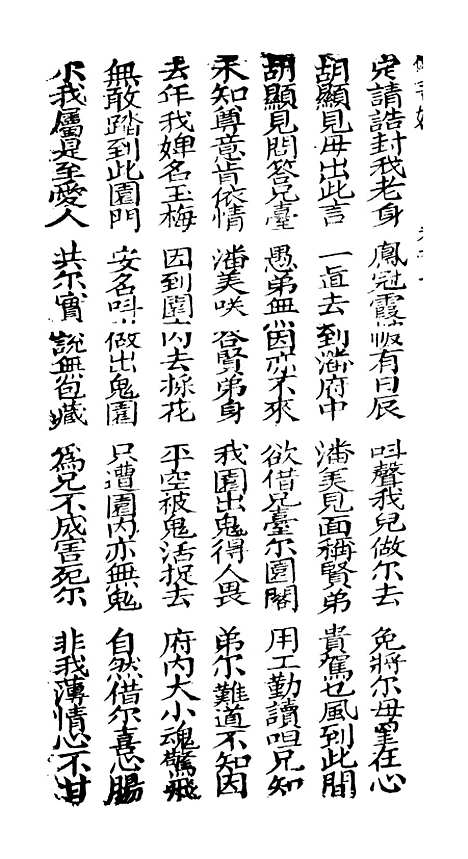 定請誥封我老身 鳳冠霞帔有日辰 叫聲我兒做尔去 免將尔母罣在心
胡顯見毋出此言 一直去到潘府中 潘美見面稱賢弟 貴駕乜風到此間
胡顯見問答兄臺 愚弟無因亦不來 欲借兄臺尔園閣 用工勤讀呾兄知
未知尊意肯依情 潘美咲答賢弟身 我園出鬼得人畏 弟尔難道不知因
去年我婢名玉梅 因到園內去採花 平空被鬼活捉去 府內大小魂驚飛
無敢踏到此園門 安名叫做出鬼園 只遭園內亦無鬼 自然借尔喜心腸
尔我屬是至愛人 共尔實說無包藏 為兄不成害死尔 非我薄情心不甘